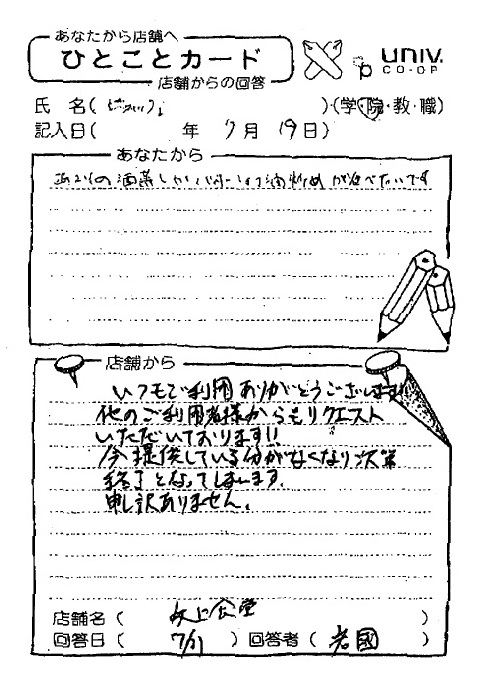 あなたから店舗へ
ひとことカード
店舗からの回答
UNIV.
CO-OP
氏 名( )・(学・院・教・職)
記入日( 年 7月 19日)
あなたから
の酒蒸しか が食べたいです
店舗から
いつもご利用ありがとうございます
他のご利用者様からもリクエスト
いただいております!!
今提供している分がなくなり次第
終了となってしまいます。
申し訳ありません。
店舗名( 食堂 )
回答日( 7/ ) 回答者( 岩國 )